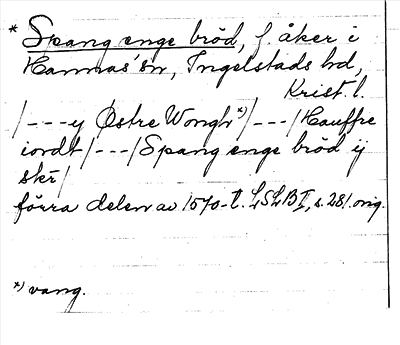 * Spang enge bröd, f. åker i
Hannas' sn, Ingelstads hd,
Krist. l.
/---y Østre Wongh *)/---/Hauffre
iordt/---/Spang enge bröd ij
skr/
förra delen av 1570-t. LSLB I, s. 281. orig.
*) vang.